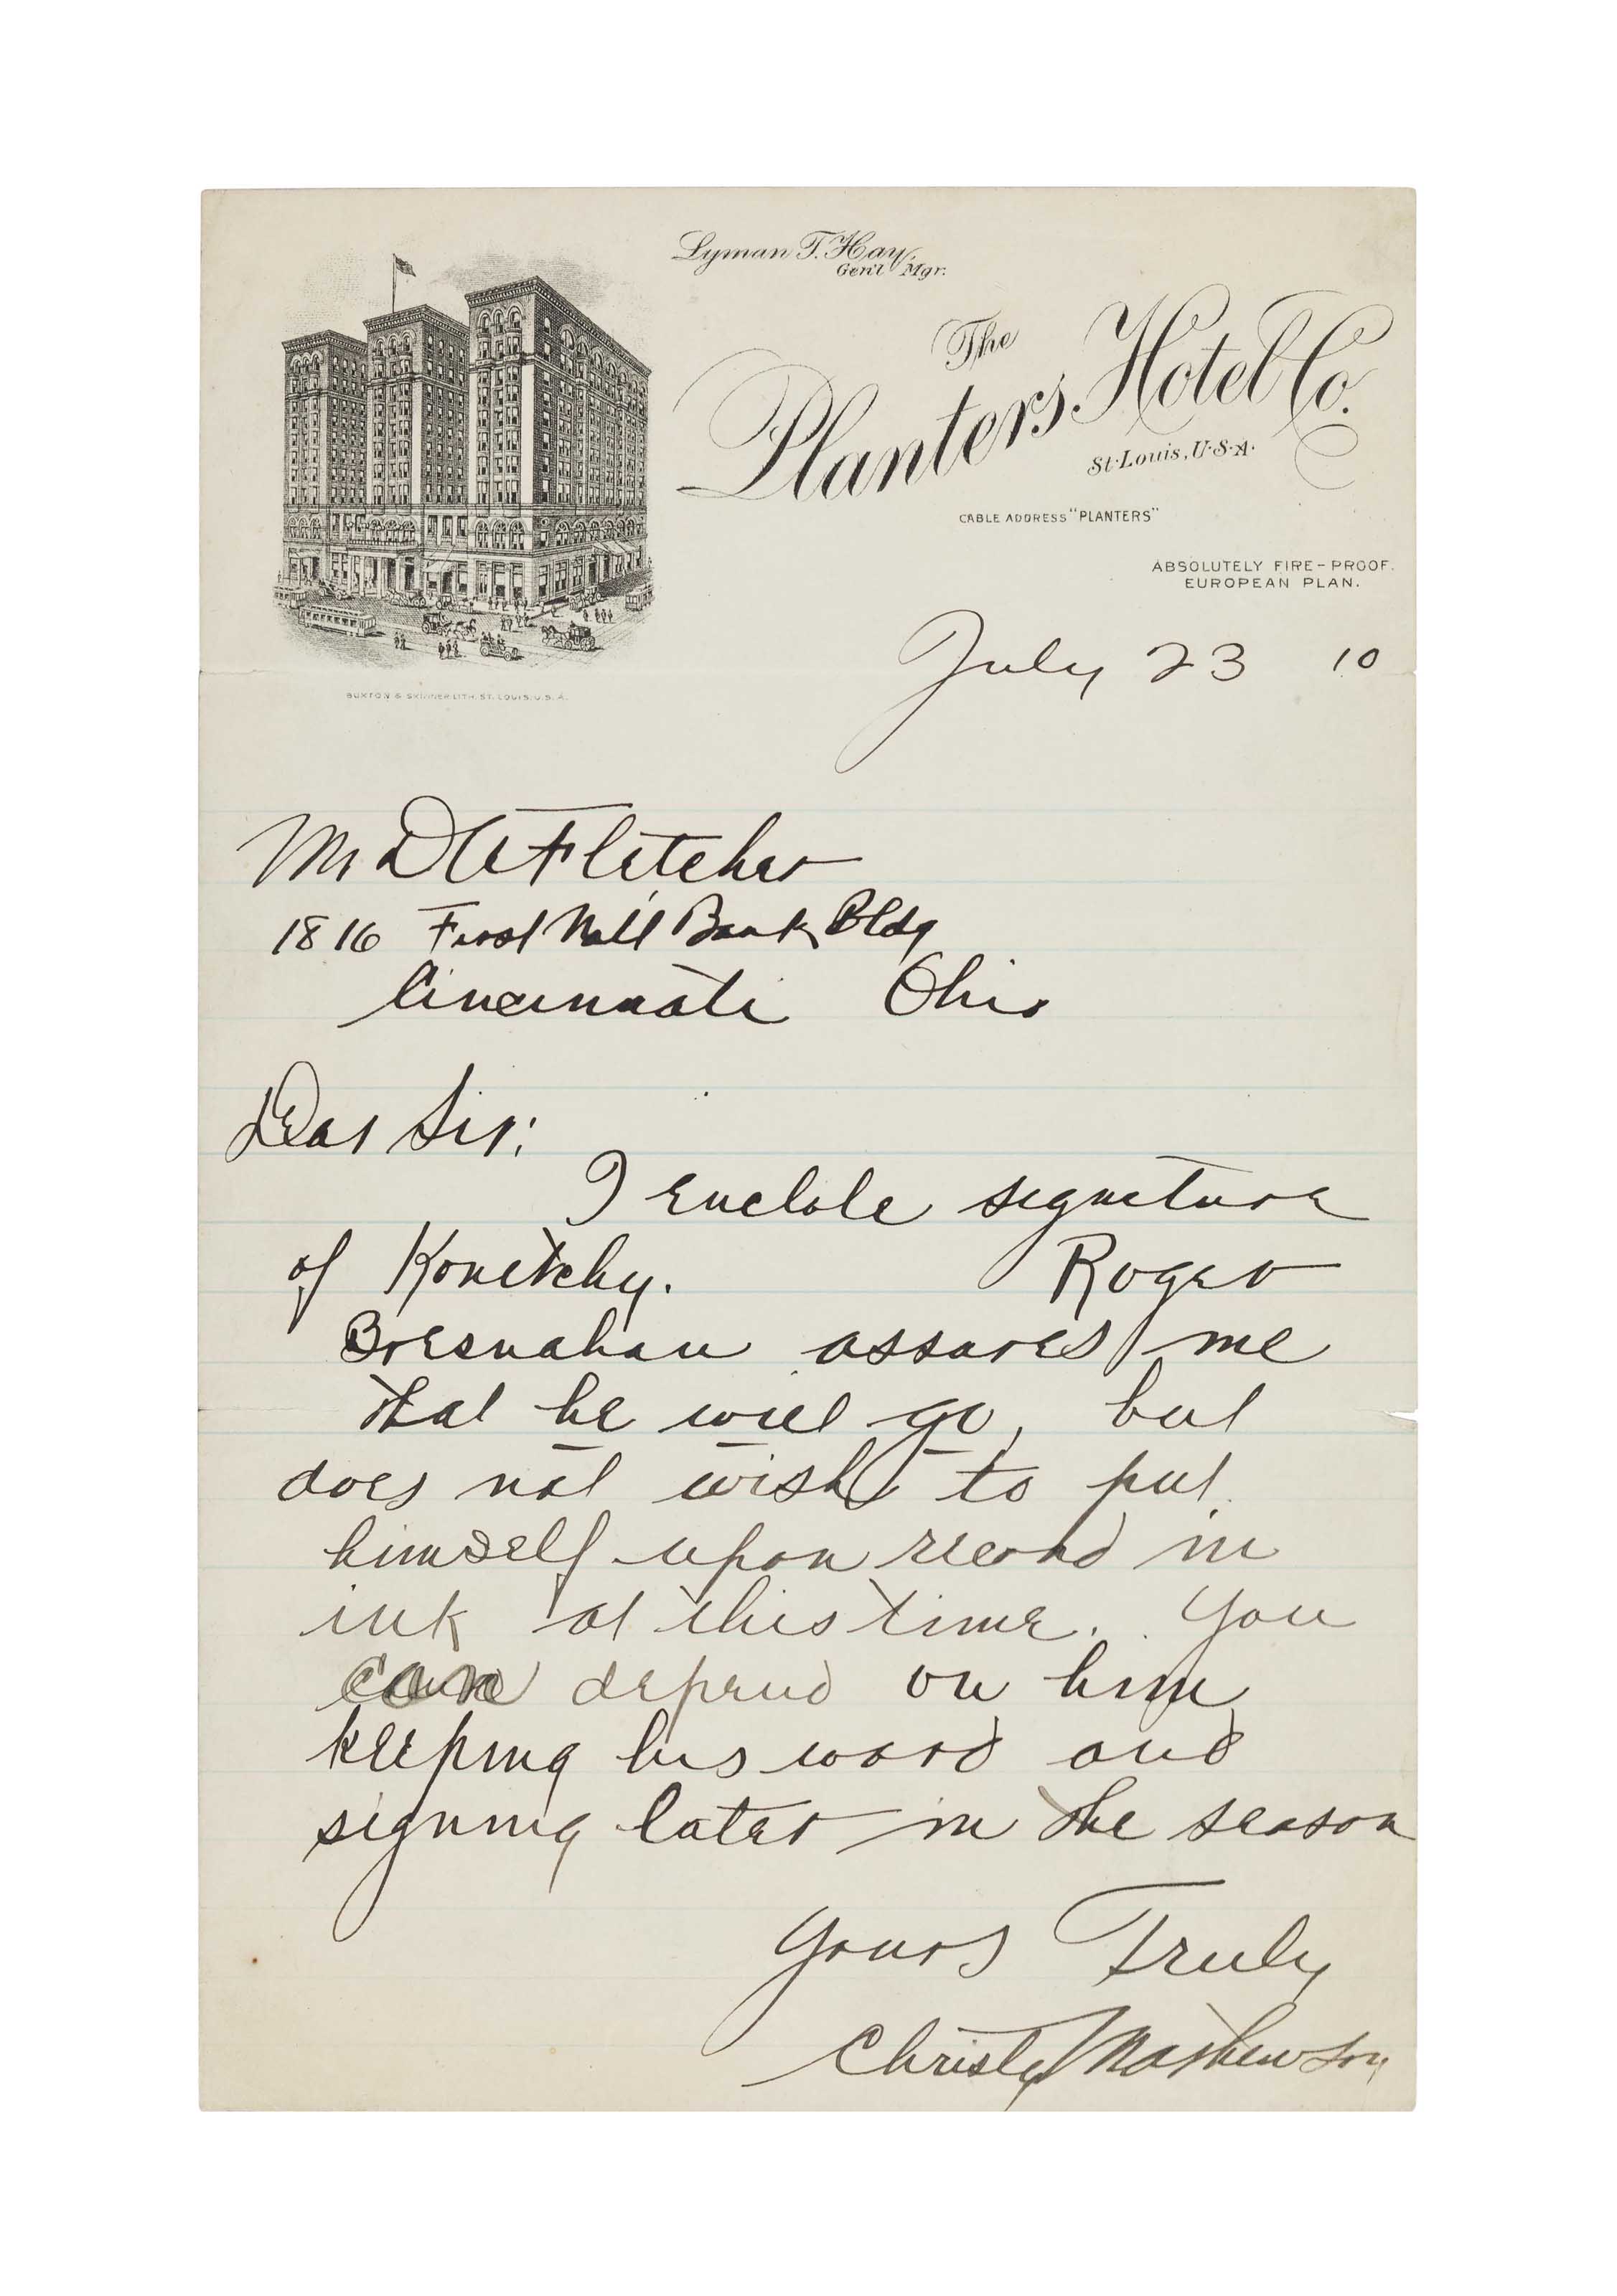 Lyman T. Hay,
Gen'l Mgr.
The
Planters Hotel Co.
St. Louis, U.S.A.
CABLE ADDRESS "PLANTERS"
ABSOLUTELY FIRE-PROOF.
EUROPEAN PLAN.
BUXTON & SKINNER LITH. ST. LOUIS, U.S.A.
July 23 10
Mr D A Fletcher
1816 First Nat'l Bank Bldg
Cincinnati Ohio
Dear Sir:
I enclose signature
of Konetchy. Roger
Bresnahan assures me
that he will go, but
does not wish to put
himself upon record in
ink at this time. You
can depend on him
keeping his word and
signing later in the season
Yours Truly
Christy Mathewson